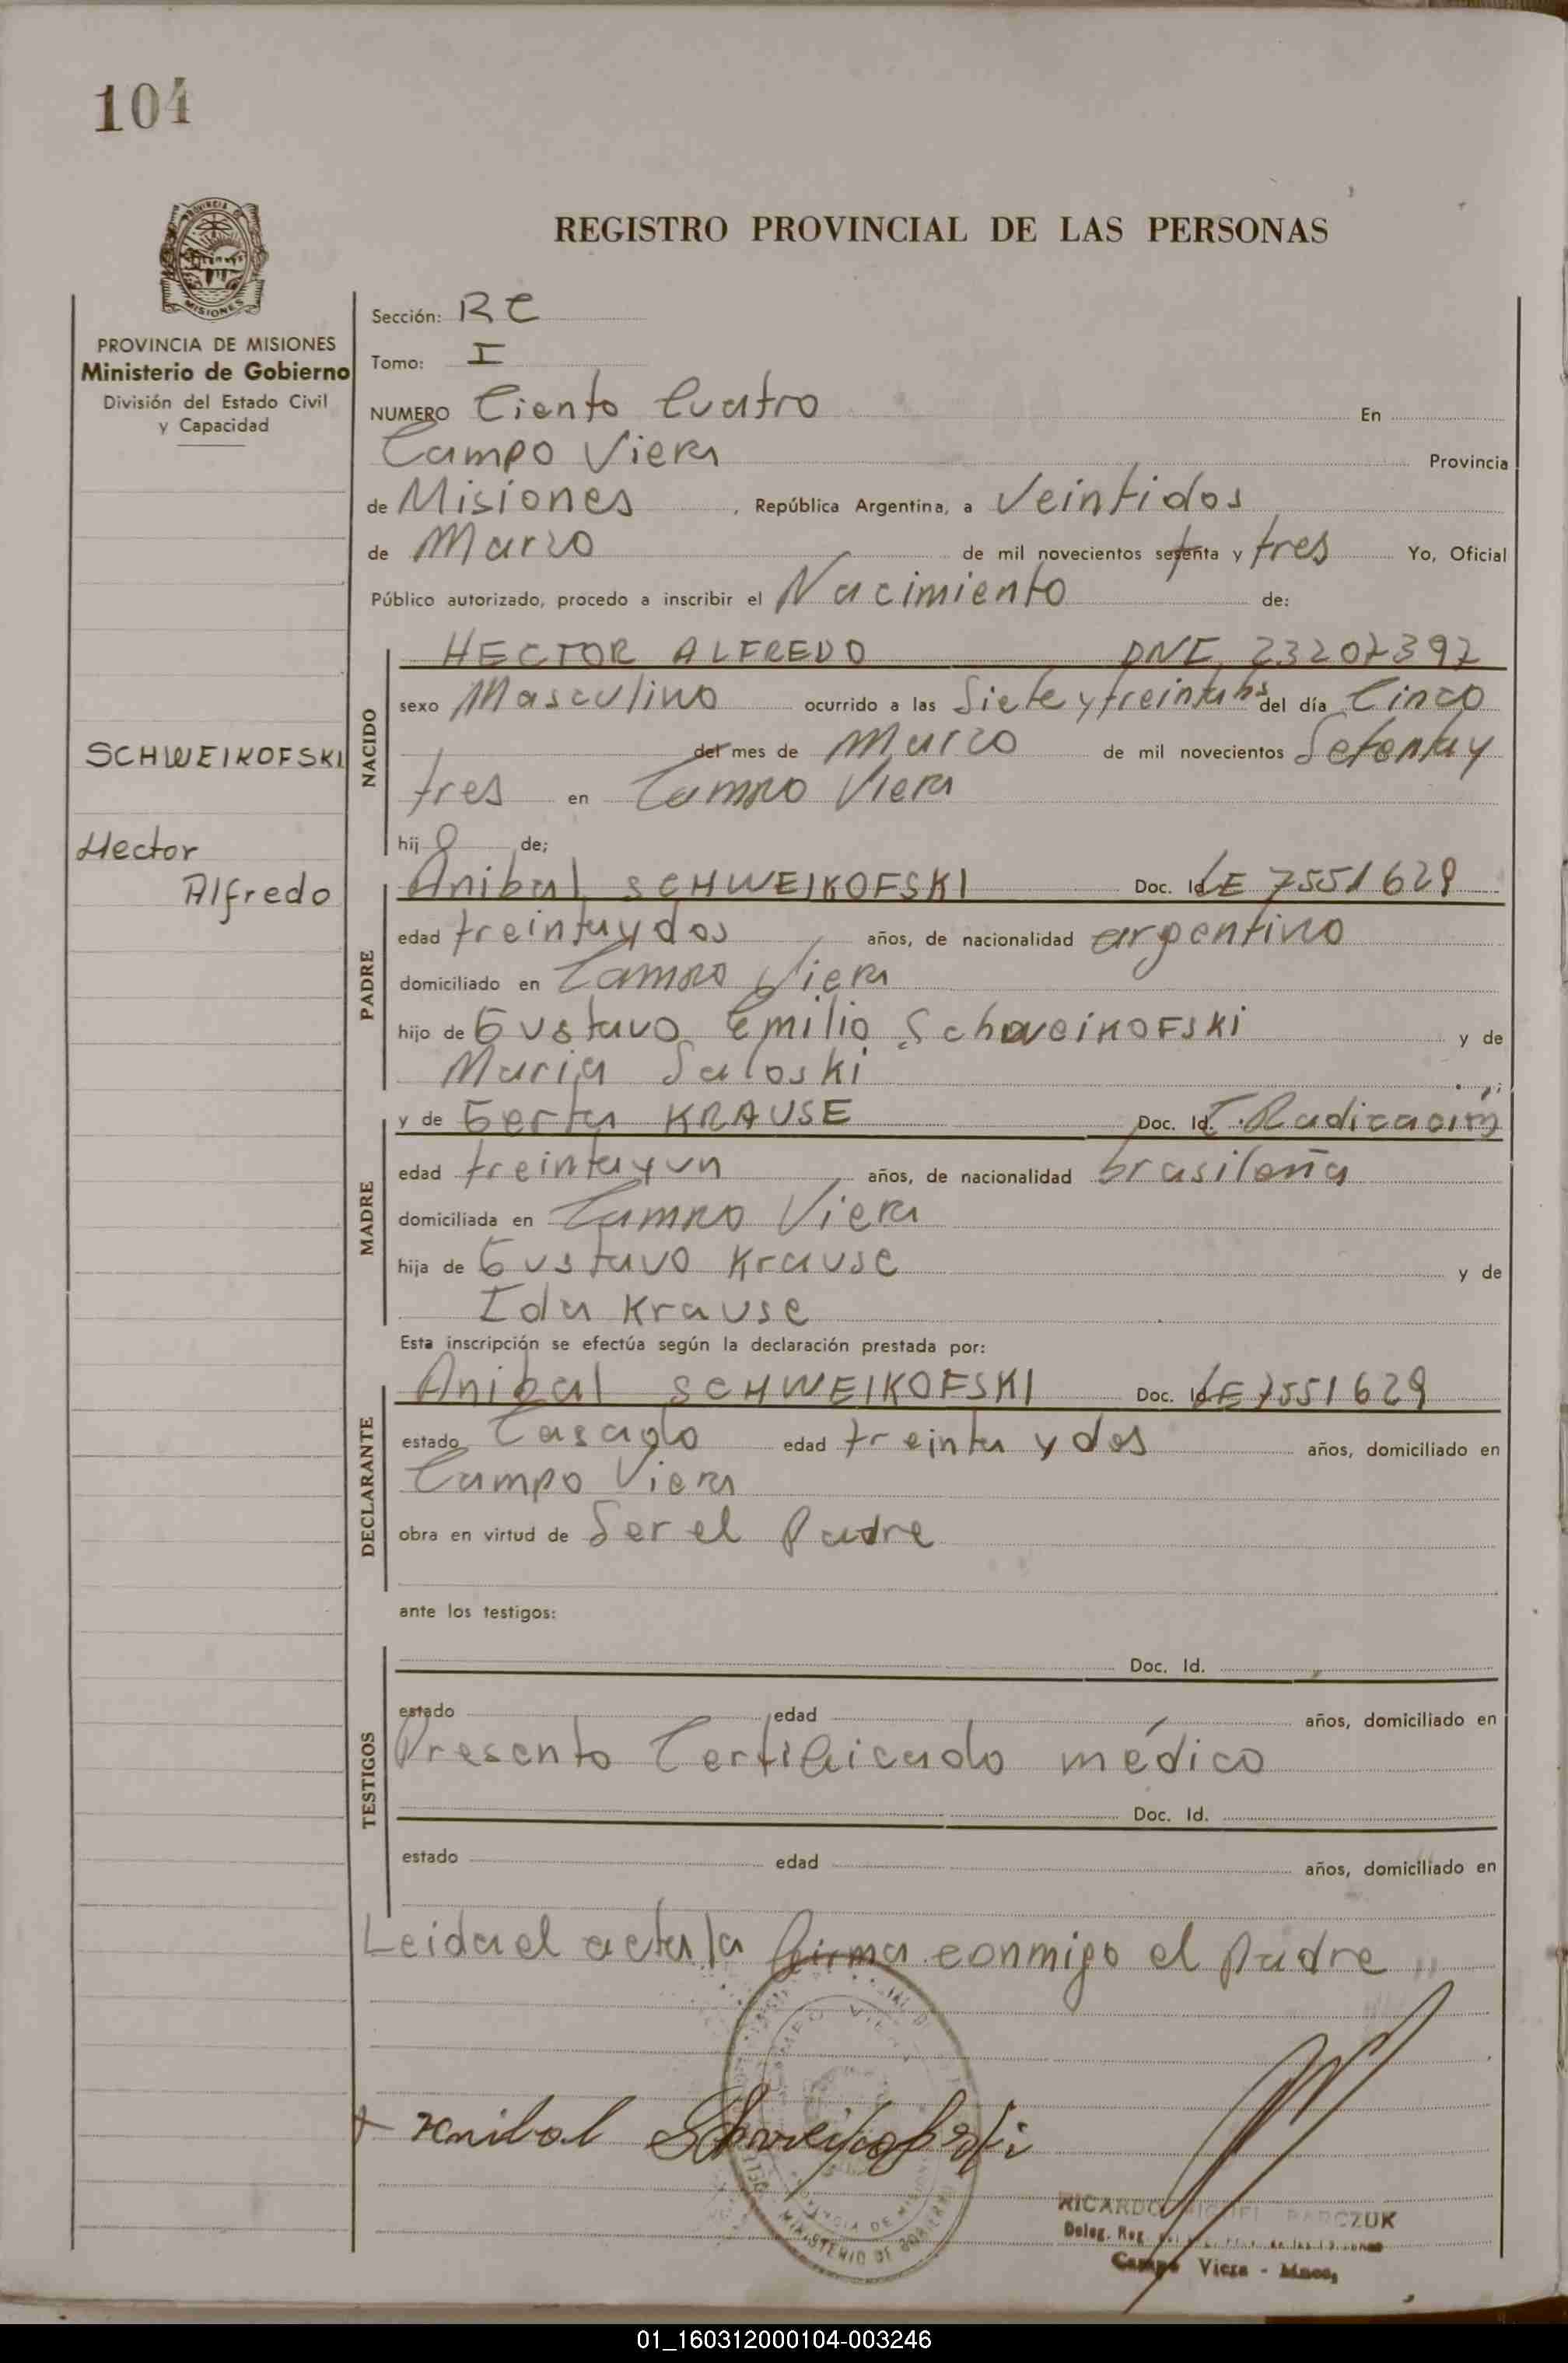 104
REGISTRO PROVINCIAL DE LAS PERSONAS
PROVINCIA DE MISIONES
Ministerio de Gobierno
División del Estado Civil
y Capacidad
SCHWEIKOFSKI
Hector
Alfredo
Sección: RC
Tomo: I
NUMERO Ciento Cuatro En
Campo Viera Provincia
de Misiones , República Argentina, a Veintidos
de Marzo de mil novecientos setenta y tres Yo, Oficial
Público autorizado, procedo a inscribir el Nacimiento de:
NACIDO
HECTOR ALFREDO DNI 23207397
sexo Masculino ocurrido a las Siete y treinta hs del día Cinco
del mes de Marzo de mil novecientos Setenta y
tres en Campo Viera
hij o de;
PADRE
Anibal SCHWEIKOFSKI Doc. Id. LE 7551629
edad treinta y dos años, de nacionalidad argentino
domiciliado en Campo Viera
hijo de Gustavo Emilio SchweikOFSKi y de
Maria Saloski
MADRE
y de Gerta KRAUSE Doc. Id. C. Radicación
edad treinta y un años, de nacionalidad brasileña
domiciliada en Campo Viera
hija de Gustavo Krause y de
Ida Krause
Esta inscripción se efectúa según la declaración prestada por:
DECLARANTE
Anibal SCHWEIKOFSKI Doc. Id. LE 7551629
estado Casado edad treinta y dos años, domiciliado en
Campo Viera
obra en virtud de Ser el Padre
ante los testigos:
TESTIGOS
Doc. Id.
estado edad años, domiciliado en
Presento Certificado médico
Doc. Id.
estado edad años, domiciliado en
Leida el acta la firma conmigo el Padre
Anibal Schweikofski
MINISTERIO DE GOBIERNO
RICARDO MIGUEL BARCZUK
Deleg. Reg. de las Personas
Campo Viera - Mnes,
01_160312000104-003246